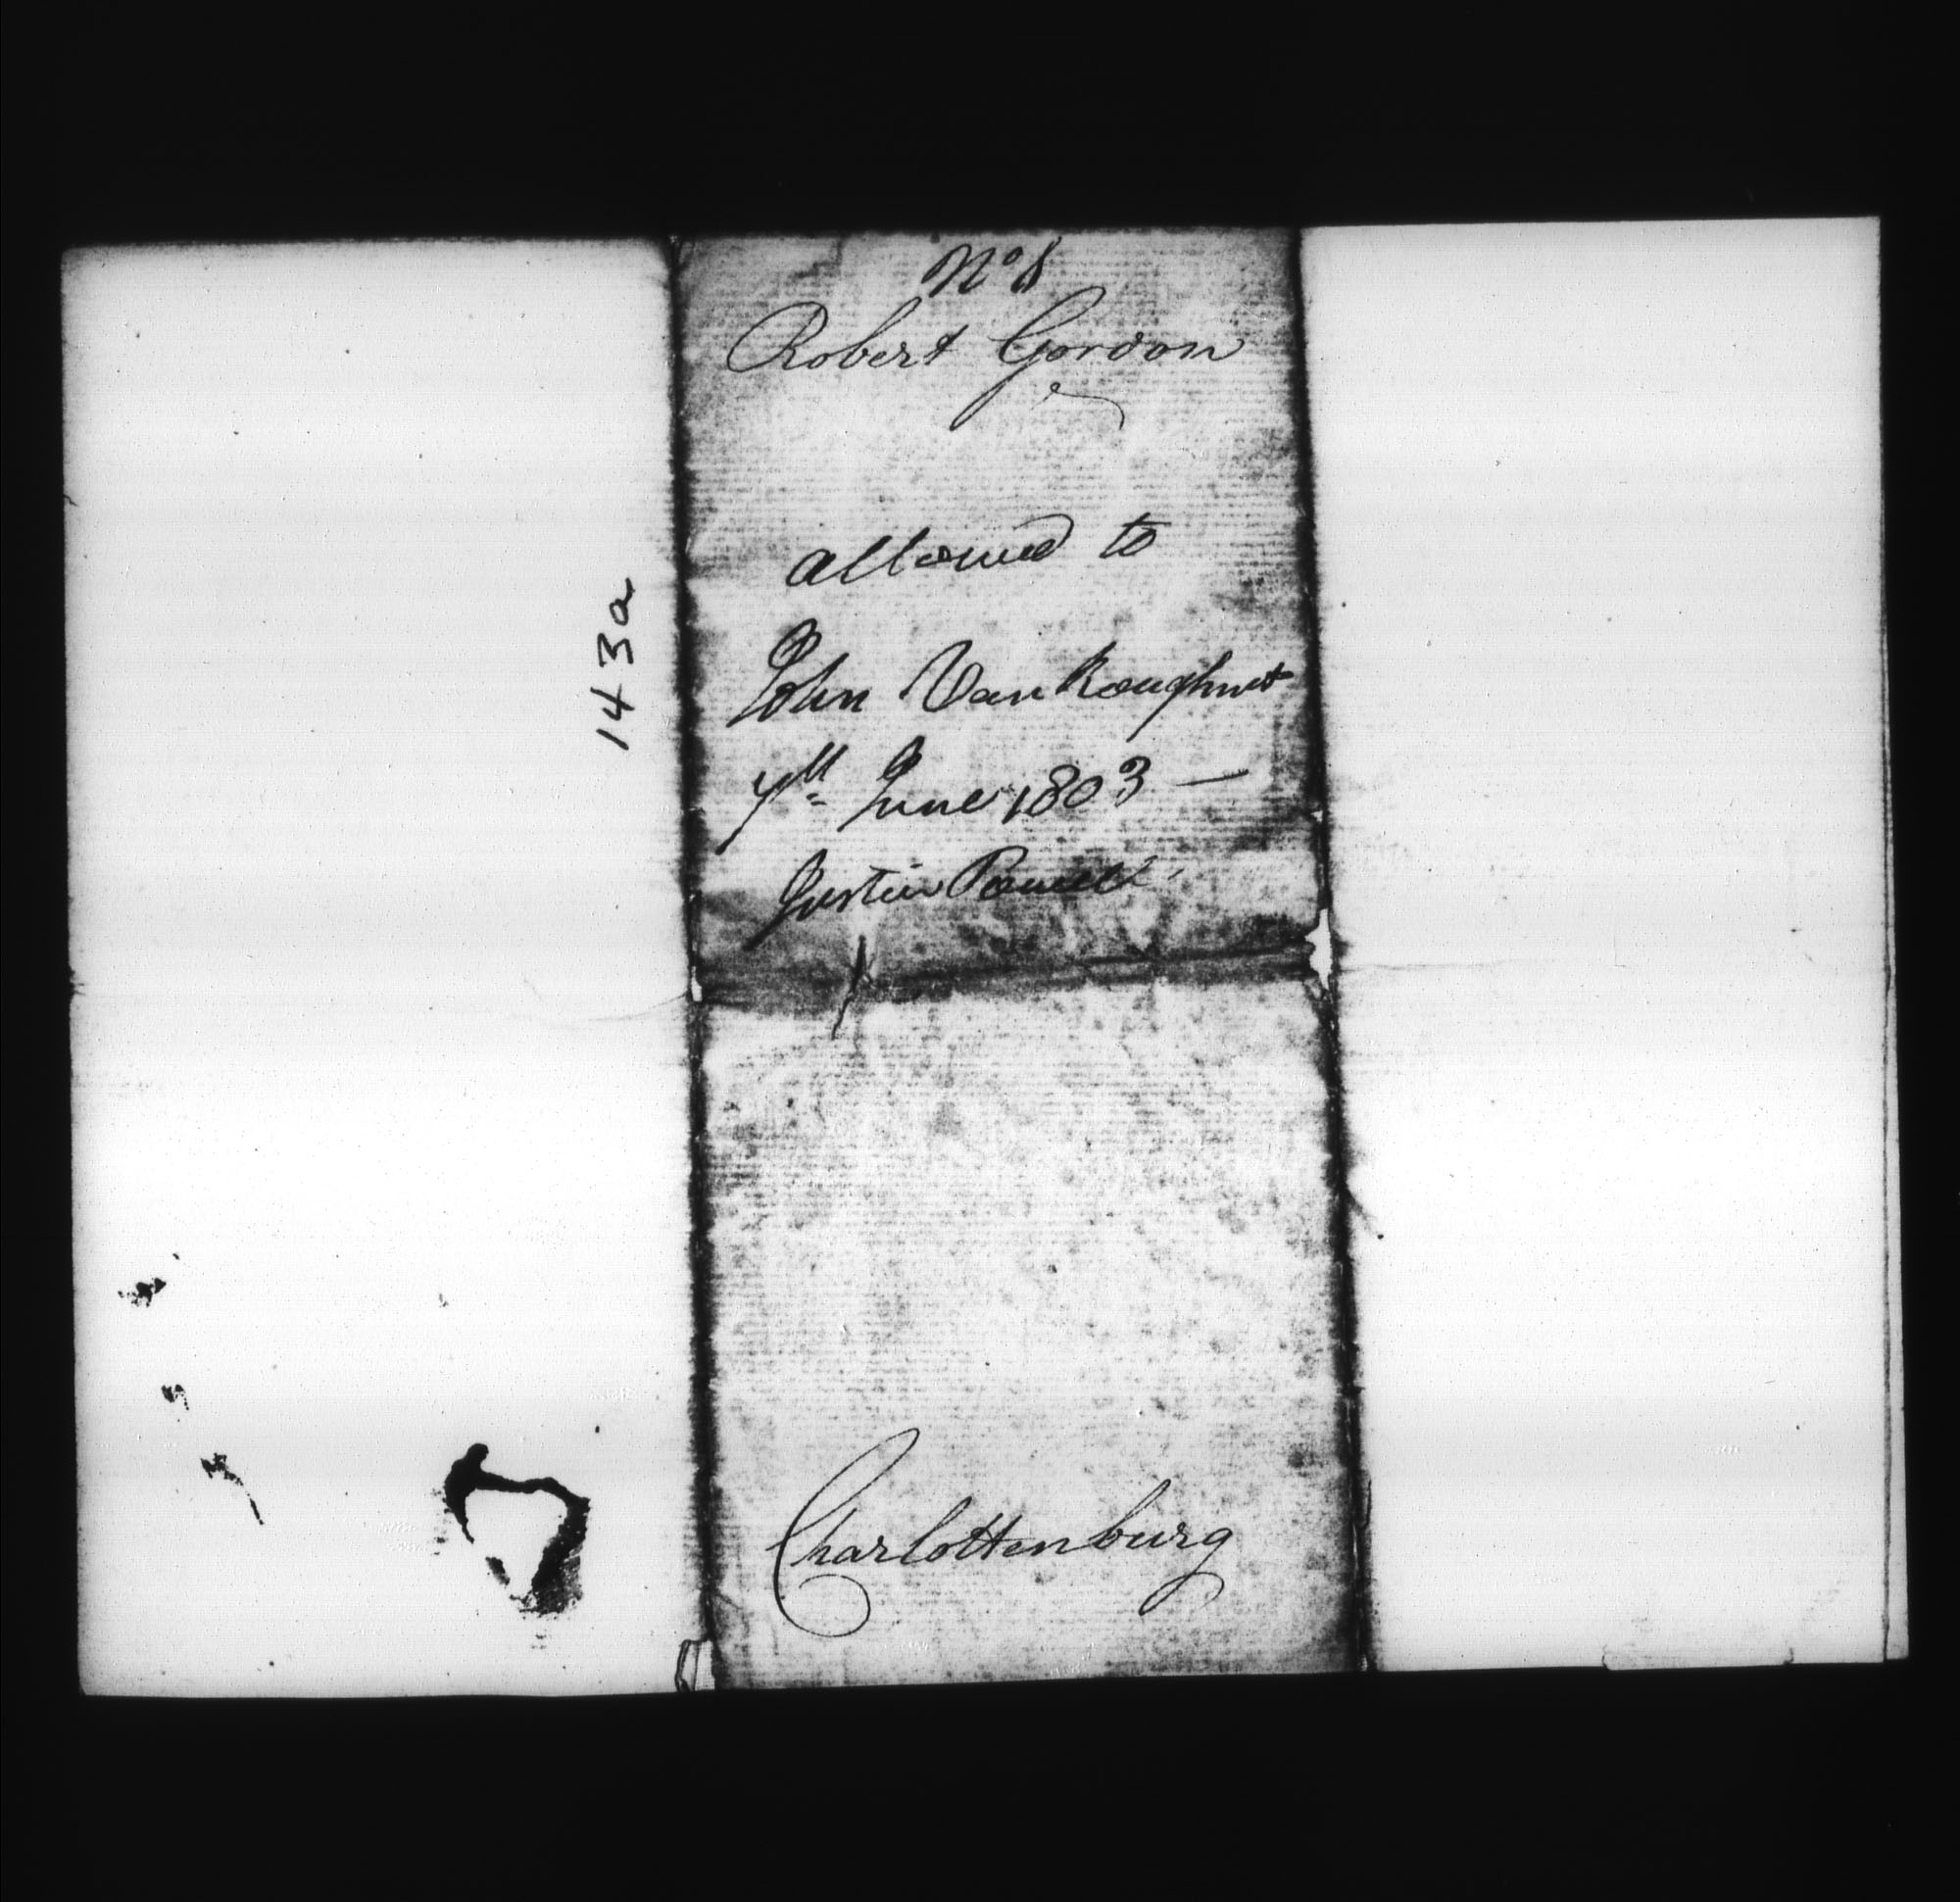 143a
No 8
Robert Gordon
allowed to
John VanKoughnet
7th June 1803 —
Charlottenburg